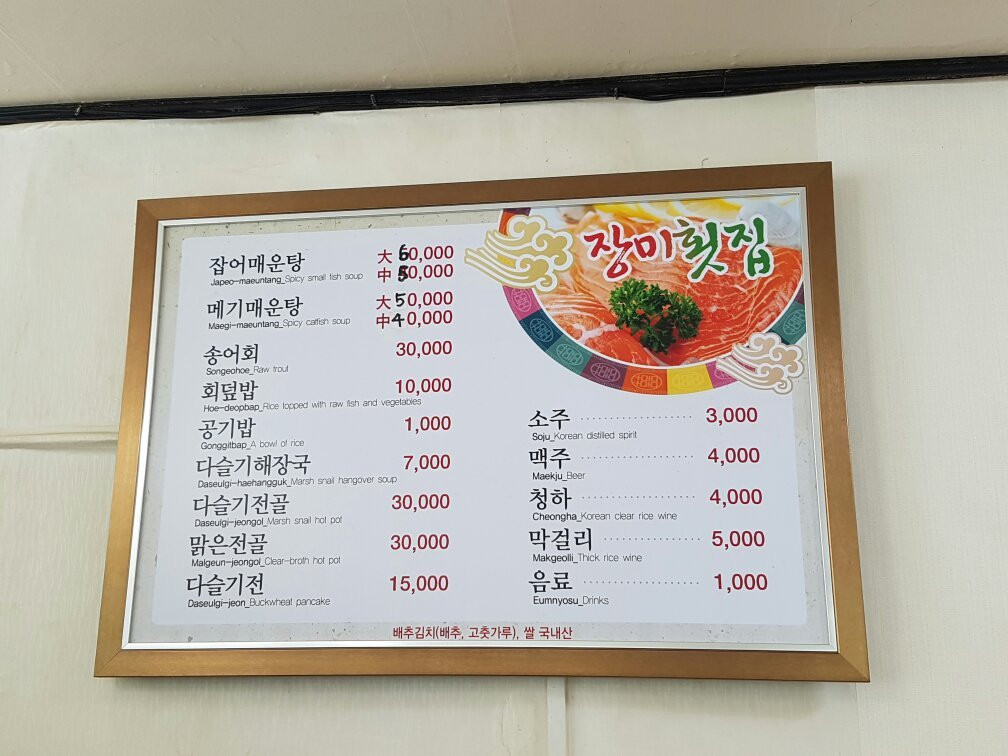 장미횟집
잡어매운탕 大 60,000
Japeo-maeuntang_Spicy small fish soup 中 50,000
메기매운탕 大 50,000
Maegi-maeuntang_Spicy catfish soup 中 40,000
송어회 30,000
Songeohoe_Raw trout
회덮밥 10,000
Hoe-deopbap_Rice topped with raw fish and vegetables
공기밥 1,000
Gonggitbap_A bowl of rice
다슬기해장국 7,000
Daseulgi-haehangguk_Marsh snail hangover soup
다슬기전골 30,000
Daseulgi-jeongol_Marsh snail hot pot
맑은전골 30,000
Malgeun-jeongol_Clear-broth hot pot
다슬기전 15,000
Daseulgi-jeon_Buckwheat pancake
소주 3,000
Soju_Korean distilled spirit
맥주 4,000
Maekju_Beer
청하 4,000
Cheongha_Korean clear rice wine
막걸리 5,000
Makgeolli_Thick rice wine
음료 1,000
Eumnyosu_Drinks
배추김치(배추, 고춧가루), 쌀 국내산